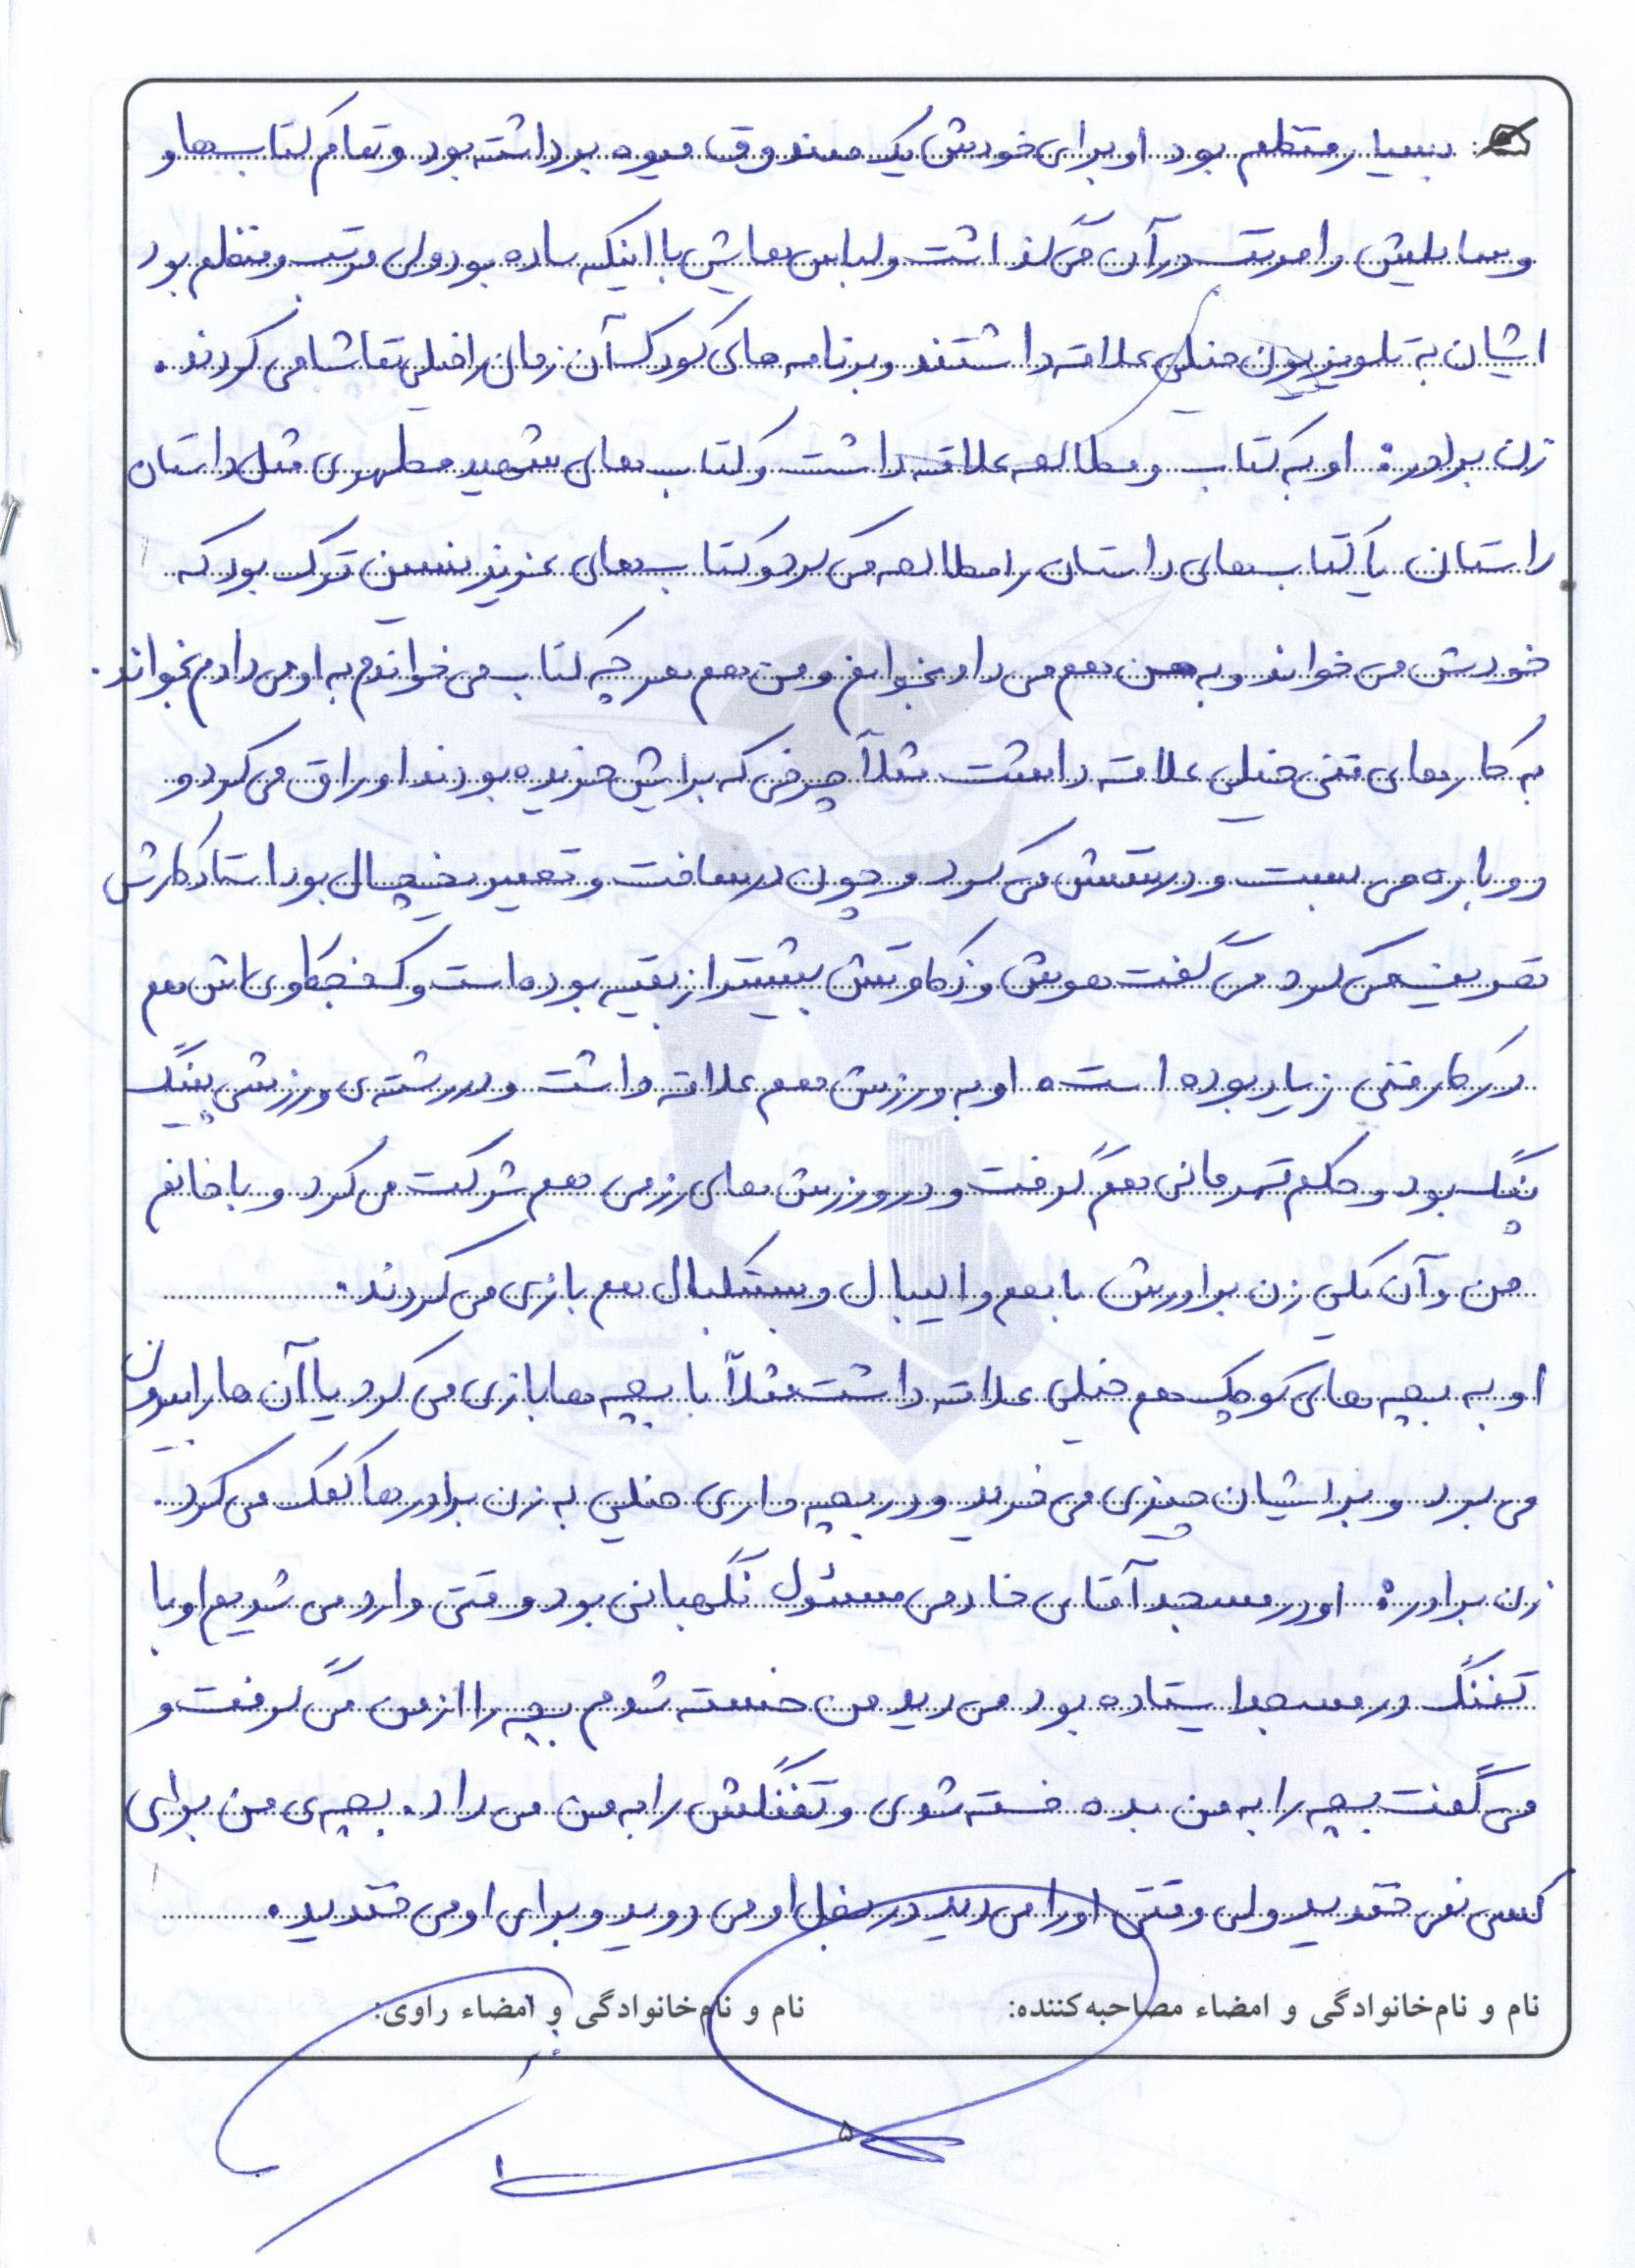 بسیار منظم بود او برای خودش یک صندوق میوه برداشته بود و تمام کتاب ها و
وسایلش را مرتب در آن می گذاشت ولباس هایش با اینکه ساده بود ولی مرتب و منظم بود
ایشان به تلویزیون خیلی علاقه داشتند و برنامه های کودک آن زمان را خیلی تماشا می کردند.
زن برادر: او به کتاب و مطالعه علاقه داشت و کتاب های شهید مطهری مثل داستان
راستان یا کتاب های داستان را مطالعه می کرد و کتاب های عزیز نسین ترک بود که
خودش می خواند و به من هم می داد بخوانم و من هم هر چه کتاب می خواندم به او می دادم بخواند.
به کارهای فنی خیلی علاقه داشت مثلاً چرخی که برایش خریده بودند اوراق می کرد و
دوباره می بست و درستش می کرد و چون در ساخت و تعمیر یخچال بود استاد کارش
تعریف می کرد می گفت هوش و ذکاوتش بیشتر از بقیه بوده است و کنجکاوی اش هم
در کار فنی زیاد بوده است. او به ورزش هم علاقه داشت و در رشته ی ورزشی پینگ
پنگ بود و حکم قهرمانی هم گرفت و در ورزش های رزمی هم شرکت می کرد و با خانم
من و آن یکی زن برادرش با هم والیبال و بسکتبال هم بازی می کردند.
او به بچه های کوچک هم خیلی علاقه داشت مثلاً با بچه ها بازی می کرد یا آن ها را بیرون
می برد و برایشان چیزی می خرید و در بچه داری خیلی به زن برادرها کمک می کرد.
زن برادر: او در مسجد آقای خادمی مسئول نگهبانی بود وقتی وارد می شدیم او با
تفنگ در مسجد ایستاده بود می دید من خسته شدم بچه را از من می گرفت و
می گفت بچه را به من بده خسته شوی و تفنگش را به من می داد. بچه ی من برای
کسی نمی خندید ولی وقتی او را می دید در بغل او می دوید و برای او می خندید.
نام و نام‌خانوادگی و امضاء مصاحبه‌کننده: نام و نام‌خانوادگی و امضاء راوی:
۵